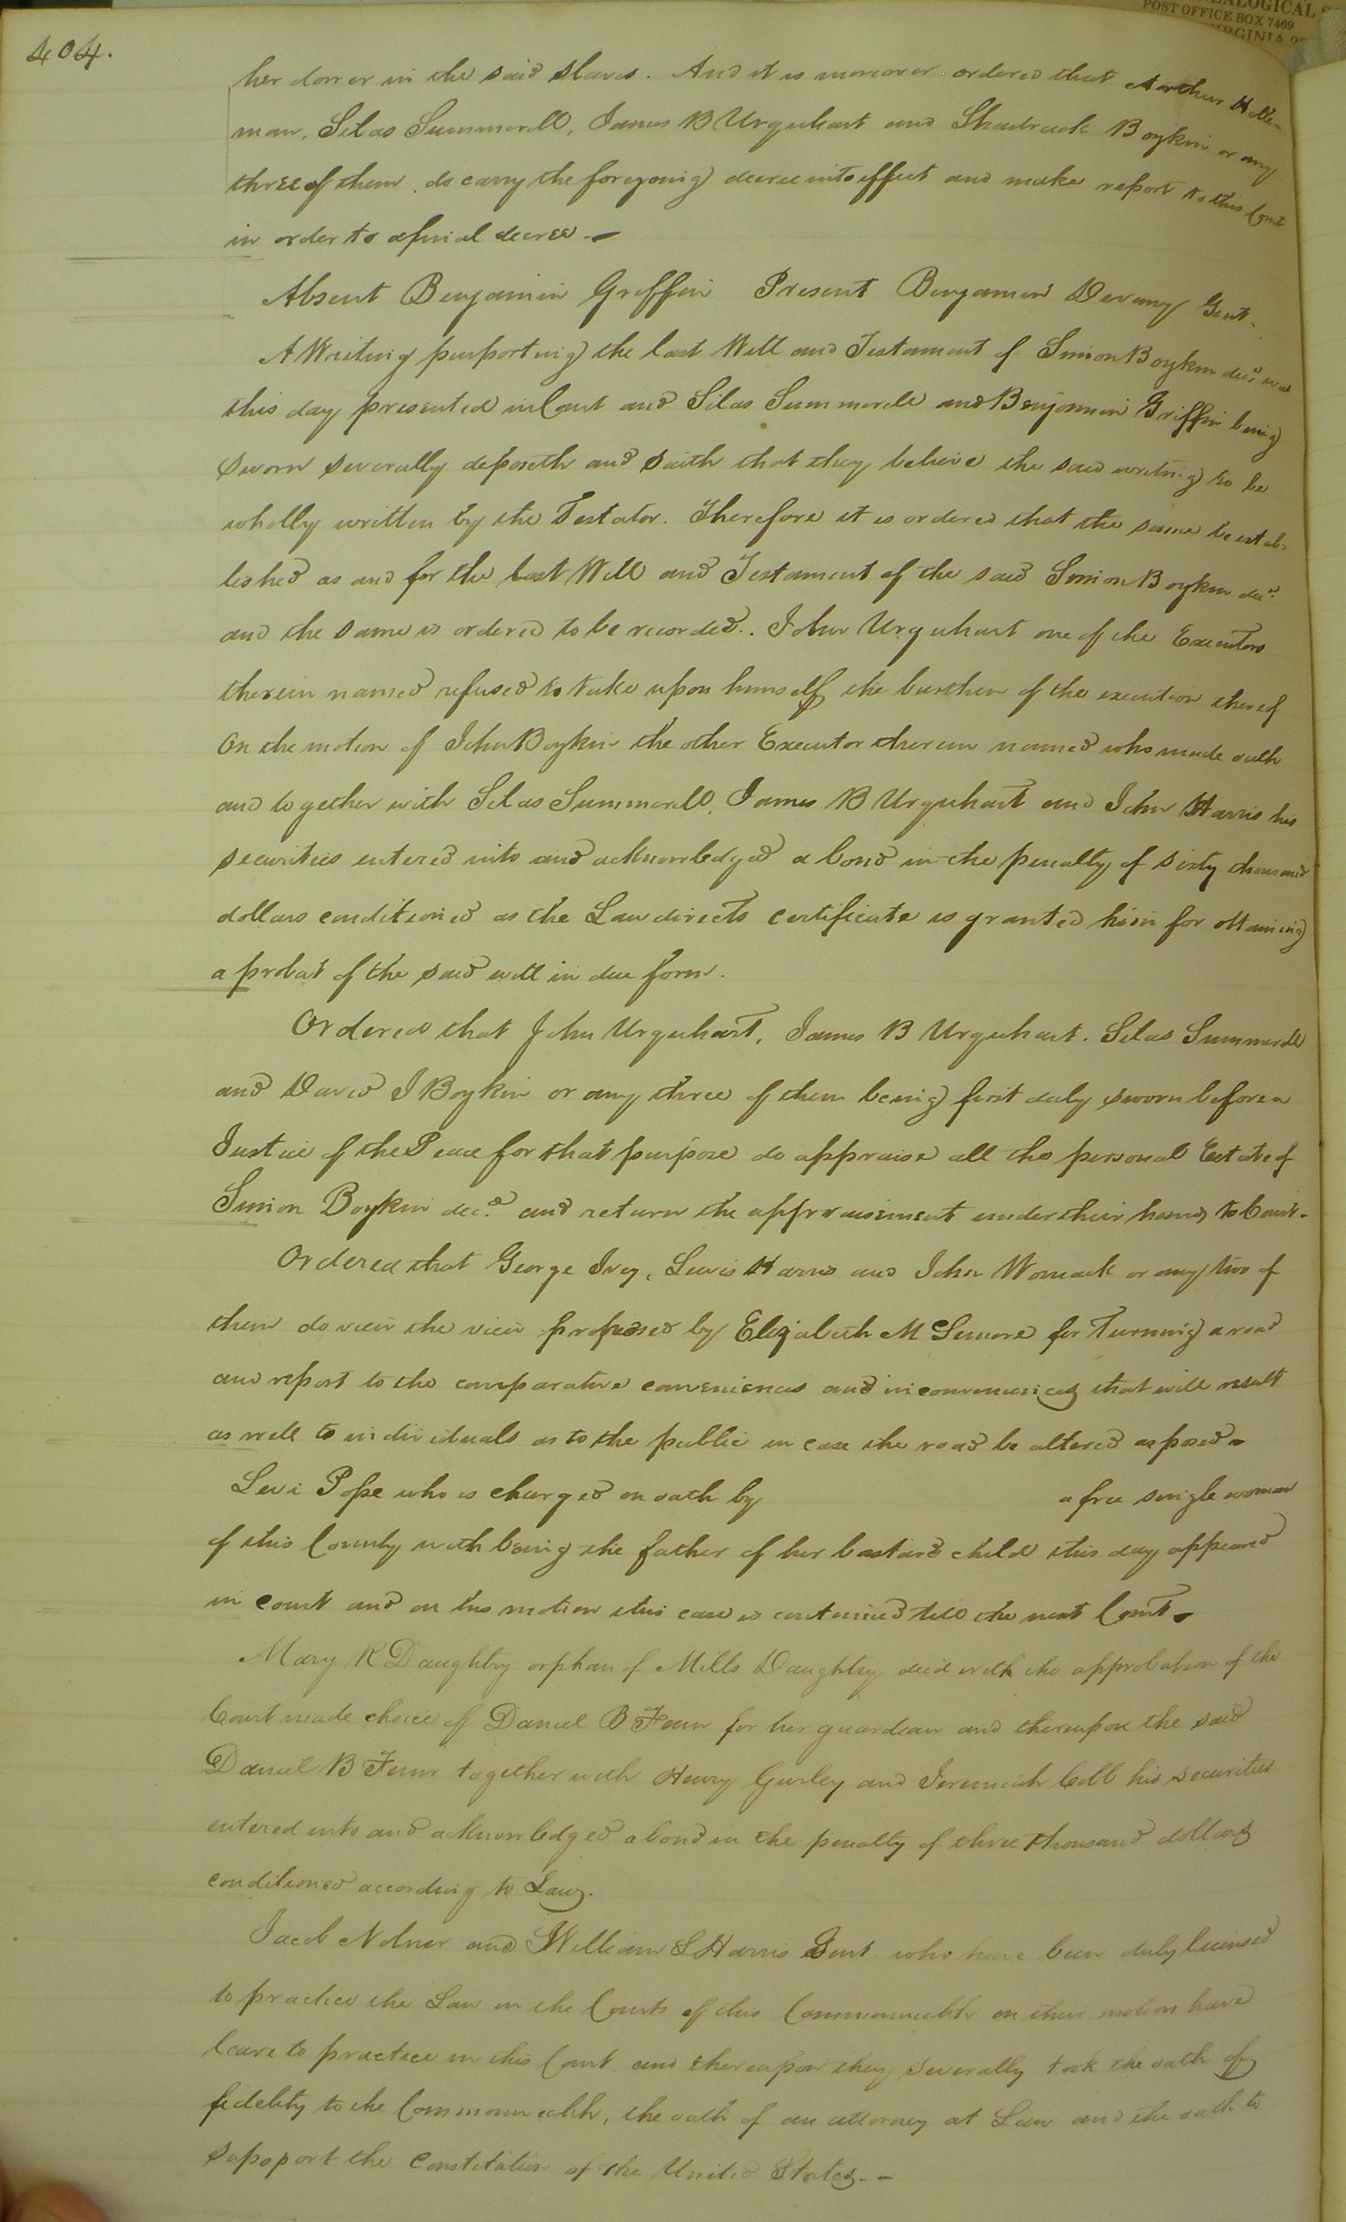 EALOGICAL S
POST OFFICE BOX 7469
VIRGINIA
404.
her dower in the said slaves. And it is moreover ordered that Arthur Holle-
man, Silas Summerell, James B Urquhart and Shadrack Boykin or any
three of them do carry the foregoing decree into effect and make report to this Court
in order to a final decree.
Absent Benjamin Griffin Present Benjamin Devany Gent.
A Writing purporting the last Will and Testament of Simon Boykin decd was
this day presented in Court and Silas Summerell and Benjamin Griffin being
sworn severally deposeth and saith that they believe the said writing to be
wholly written by the Testator. Therefore it is ordered that the same be estab-
lished as and for the last Will and Testament of the said Simon Boykin decd.
and the same is ordered to be recorded.. John Urquhart one of the Executors
therein named refused to take upon himself the burthen of the execution thereof
On the motion of John Boykin the other Executor therein named who made oath
and together with Silas Summerell, James B Urquhart and John Harris his
securities entered into and acknowledged a bond in the penalty of sixty thousand
dollars conditioned as the Law directs certificate is granted him for obtaining
a probat of the said will in due form.
Ordered that John Urquhart, James B Urquhart. Silas Summerell
and David J Boykin or any three of them being first duly sworn before a
Justice of the Peace for that purpose do appraise all the personal Estate of
Simon Boykin decd. and return the appraisement under their hands to Court-
Ordered that George Ivey, Lewis Harris and John Womack or any two of
them do view the view proposed by Elizabeth M Lemore for Turning a road
and report to the comparative conveniences and inconveniences that will result
as well to individuals as to the public in case the road be altered as posed
Levi Pope who is charged on oath by a free single woman
of this County with being the father of her bastard child this day appeared
in court and on his motion this case is continued till the next Court
Mary R Daughtry orphan of Mills Daughtry decd with the approbation of the
Court made choice of Daniel B Fenn for her guardian and thereupon the said
Daniel B Fenn together with Henry Gurley and Jeremiah Cobb his securities
entered into and acknowledged a bond in the penalty of three thousand dollars
conditioned according to Law.
Jacob Nolner and William L Harris Gent who have been duly licensed
to practice the Law in the Courts of this Commonwealth on their motion have
leave to practice in this Court and thereupon they severally took the oath of
fidelity to the Commonwealth, the oath of an attorney at Law and the oath to
support the Constitution of the United States.-